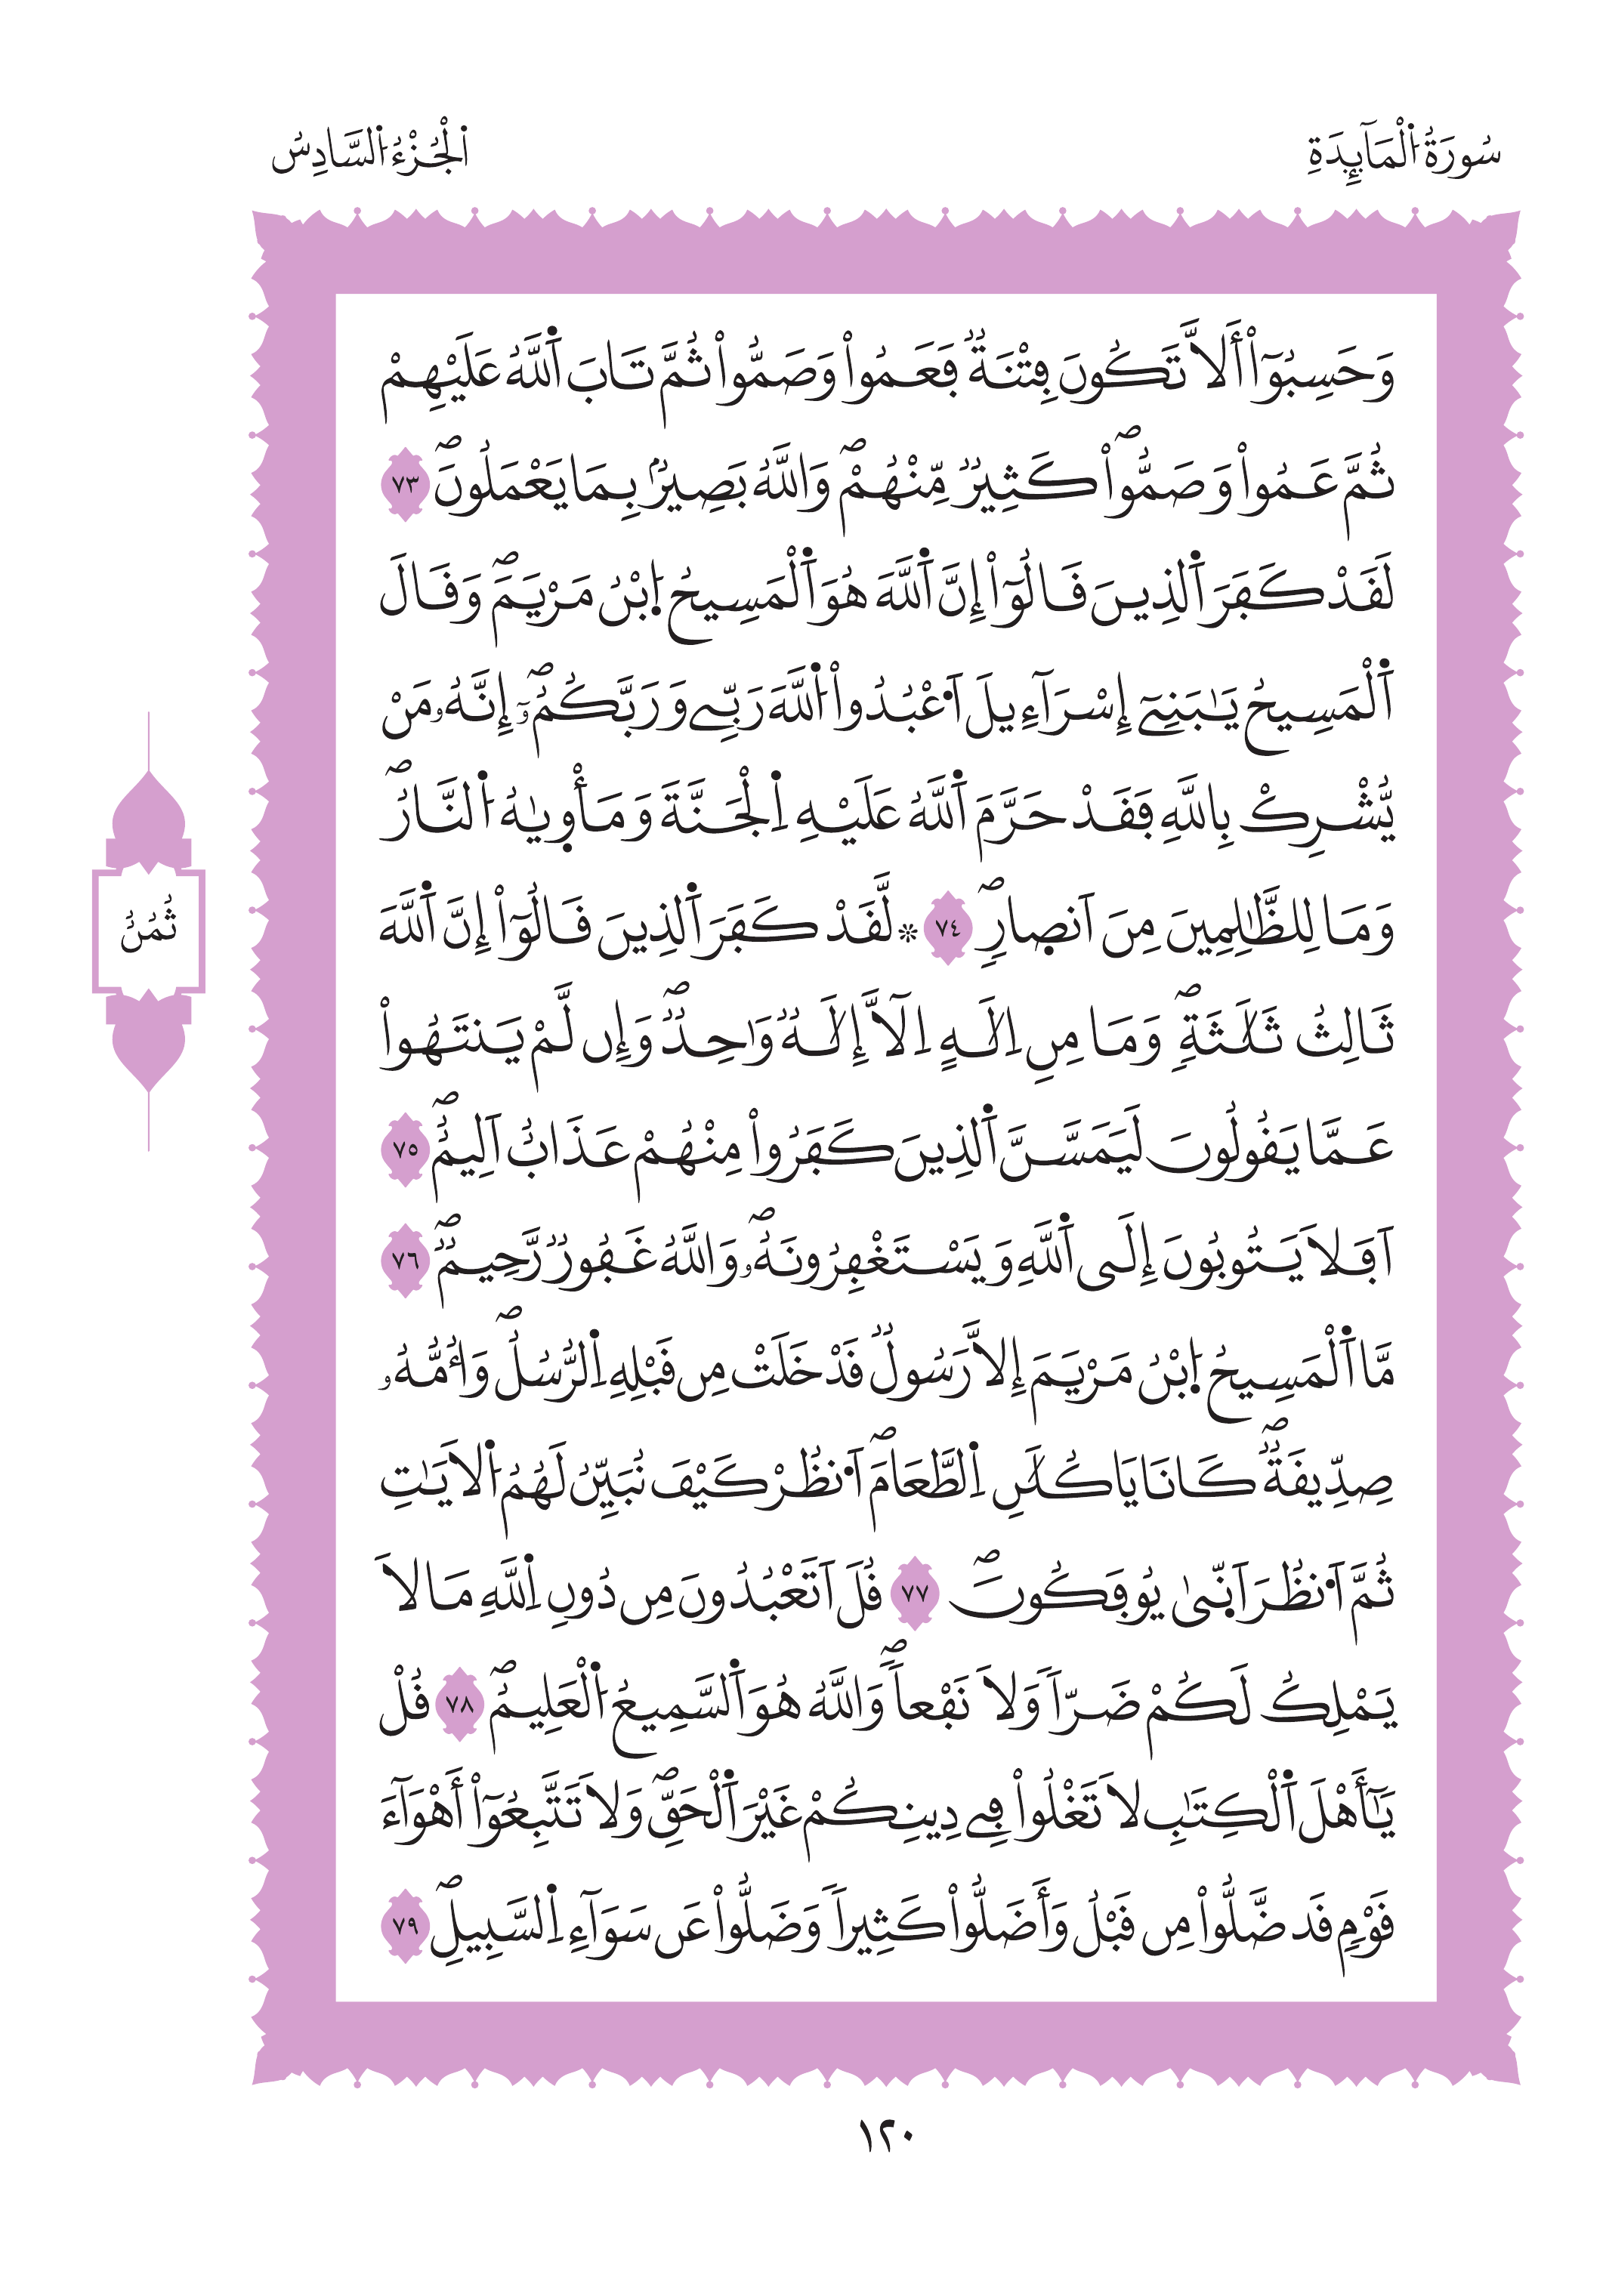 سُورَةُ الْمَآئِدَةِ
الْجُزْءُ السَّادِسُ
وَحَسِبُوٓاْ أَلَّا تَكُونَ فِتْنَةٞ فَعَمُواْ وَصَمُّواْ ثُمَّ تَابَ اَ۬للَّهُ عَلَيْهِمْ
ثُمَّ عَمُواْ وَصَمُّواْ كَثِيرٞ مِّنْهُمْۖ وَاللَّهُ بَصِيرُۢ بِمَا يَعْمَلُونَۖ ٧٣
لَقَدْ كَفَرَ اَ۬لذِينَ قَالُوٓاْ إِنَّ اَ۬للَّهَ هُوَ اَ۬لْمَسِيحُ اُ۪بْنُ مَرْيَمَۖ وَقَالَ
اَ۬لْمَسِيحُ يَٰبَنِےٓ إِسْرَآءِيلَ اَ۟عْبُدُواْ اُ۬للَّهَ رَبِّے وَرَبَّكُمُۥٓۖ إِنَّهُۥ مَنْ
يُّشْرِكْ بِاللَّهِ فَقَدْ حَرَّمَ اَ۬للَّهُ عَلَيْهِ اِ۬لْجَنَّةَ وَمَأْو۪يٰهُ اُ۬لنَّارُۖ
وَمَا لِلظَّٰلِمِينَ مِنَ اَنص۪ارٖۖ ٧٤ ۞ لَّقَدْ كَفَرَ اَ۬لذِينَ قَالُوٓاْ إِنَّ اَ۬للَّهَ
ثَالِثُ ثَلَٰثَةٖۖ وَمَا مِنِ اِلَٰهٍ اِلَّآ إِلَٰهٞ وَٰحِدٞۖ وَإِن لَّمْ يَنتَهُواْ
عَمَّا يَقُولُونَ لَيَمَسَّنَّ اَ۬لذِينَ كَفَرُواْ مِنْهُمْ عَذَابٌ اَلِيمٌۖ ٧٥
اَفَلَا يَتُوبُونَ إِلَى اَ۬للَّهِ وَيَسْتَغْفِرُونَهُۥۖ وَاللَّهُ غَفُورٞ رَّحِيمٞۖ ٧٦
مَّا اَ۬لْمَسِيحُ اُ۪بْنُ مَرْيَمَ إِلَّا رَسُولٞ قَدْ خَلَتْ مِن قَبْلِهِ اِ۬لرُّسُلُۖ وَأُمُّهُۥ
صِدِّيقَةٞۖ كَانَا يَاكُلَٰنِ اِ۬لطَّعَامَۖ اَ۟نظُرْ كَيْفَ نُبَيِّنُ لَهُمُ اُ۬لَايَٰتِ
ثُمَّ اَ۟نظُرَ اَنّ۪ىٰ يُوفَكُونَۖ ٧٧ قُلَ اَتَعْبُدُونَ مِن دُونِ اِ۬للَّهِ مَا لَا
يَمْلِكُ لَكُمْ ضَرّاٗ وَلَا نَفْعاٗۖ وَاللَّهُ هُوَ اَ۬لسَّمِيعُ اُ۬لْعَلِيمُۖ ٧٨ قُلْ
يَٰٓأَهْلَ اَ۬لْكِتَٰبِ لَا تَغْلُواْ فِے دِينِكُمْ غَيْرَ اَ۬لْحَقِّۖ وَلَا تَتَّبِعُوٓاْ أَهْوَآءَ
قَوْمٖ قَد ضَّلُّواْ مِن قَبْلُ وَأَضَلُّواْ كَثِيراٗ وَضَلُّواْ عَن سَوَآءِ اِ۬لسَّبِيلِۖ ٧٩
ثُمُنُ
١٢٠